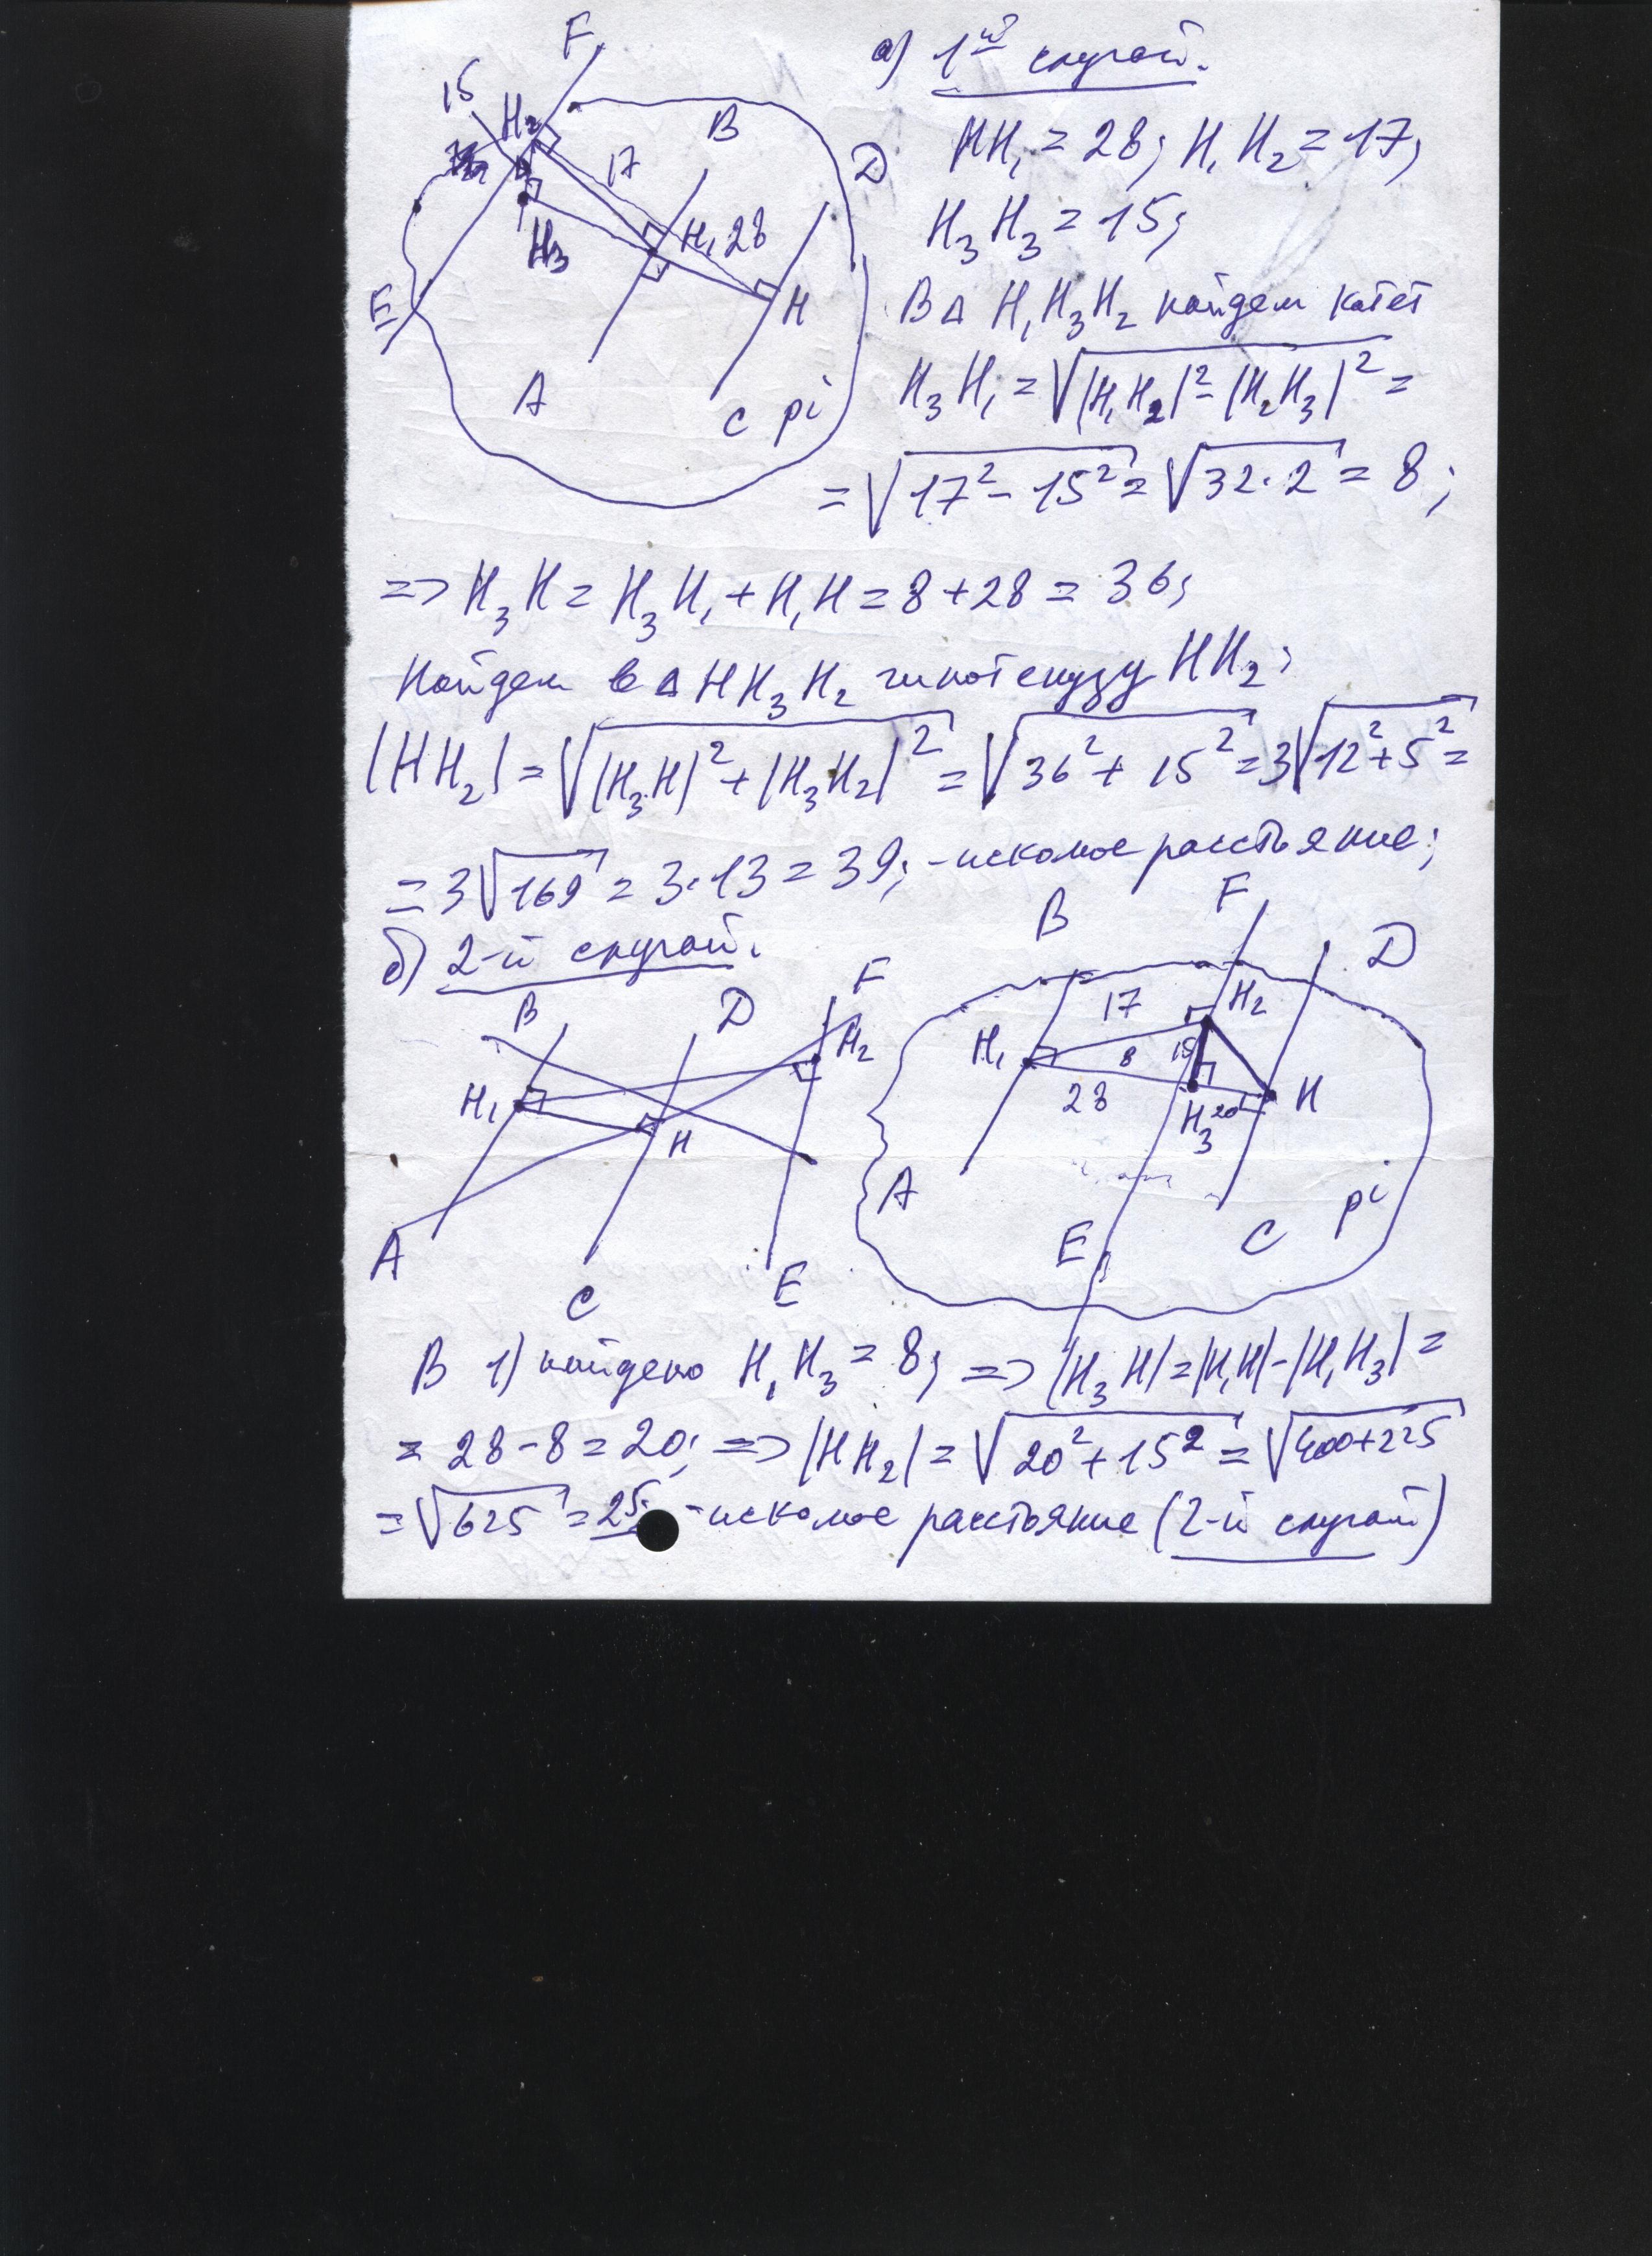 а) 1й случай.
F
15
H₂
17
B
D
H₃
H₁ 28
H
E
A
C pi
HH₁ = 28; H₁H₂ = 17;
H₃H₃ = 15;
В Δ H₁H₃H₂ найдем катет
H₃H₁ = √|H₁H₂|² - |H₂H₃|² =
= √17² - 15² = √32·2 = 8;
=> H₃H = H₃H₁ + H₁H = 8 + 28 = 36;
Найдем в Δ HH₃H₂ гипотенузу HH₂:
|HH₂| = √|H₃H|² + |H₃H₂|² = √36² + 15² = 3√12² + 5² =
= 3√169 = 3·13 = 39; - искомое расстояние;
б) 2-й случай.
B
D
F
H₂
H₁
H
A
C
E
B
F
D
17
H₂
H₁
8
15
28
H₃
20
H
A
E
C
pi
В 1) найдено H₁H₃ = 8; => |H₃H| = |H₁H| - |H₁H₃| =
= 28 - 8 = 20; => |HH₂| = √20² + 15² = √400 + 225
= √625 = 25; - искомое расстояние (2-й случай)